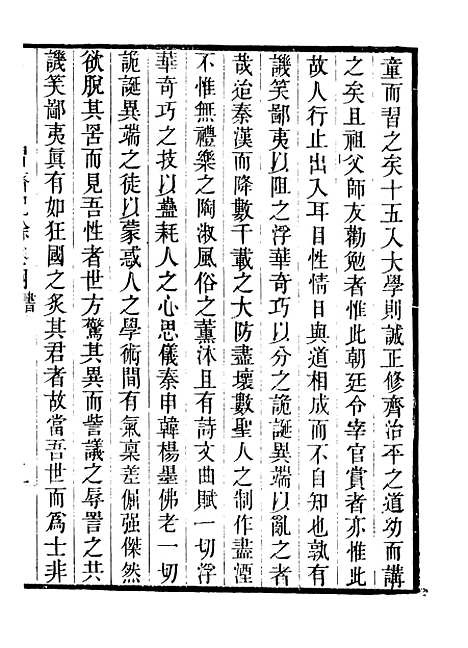 童而習之矣十五入大學則誠正修齊治平之道幼而講
之矣且祖父師友勸勉者惟此朝廷令宰官賞者亦惟此
故人行止出入耳目性情日與道相成而不自知也孰有
譏笑鄙夷以阻之浮華奇巧以分之詭誕異端以亂之者
哉迨秦漢而降數千載之大防盡壞數聖人之制作盡煙
不惟無禮樂之陶淑風俗之薰沐且有詩文曲賦一切浮
華奇巧之技以蠱耗人之心思儀秦申韓楊墨佛老一切
詭誕異端之徒以蒙惑人之學術間有氣稟差倔强傑然
欲脫其罟而見吾性者世方驚其異而訾議之辱詈之共
譏笑鄙夷眞有如狂國之炙其君者故當吾世而爲士非
習齋記餘卷四書